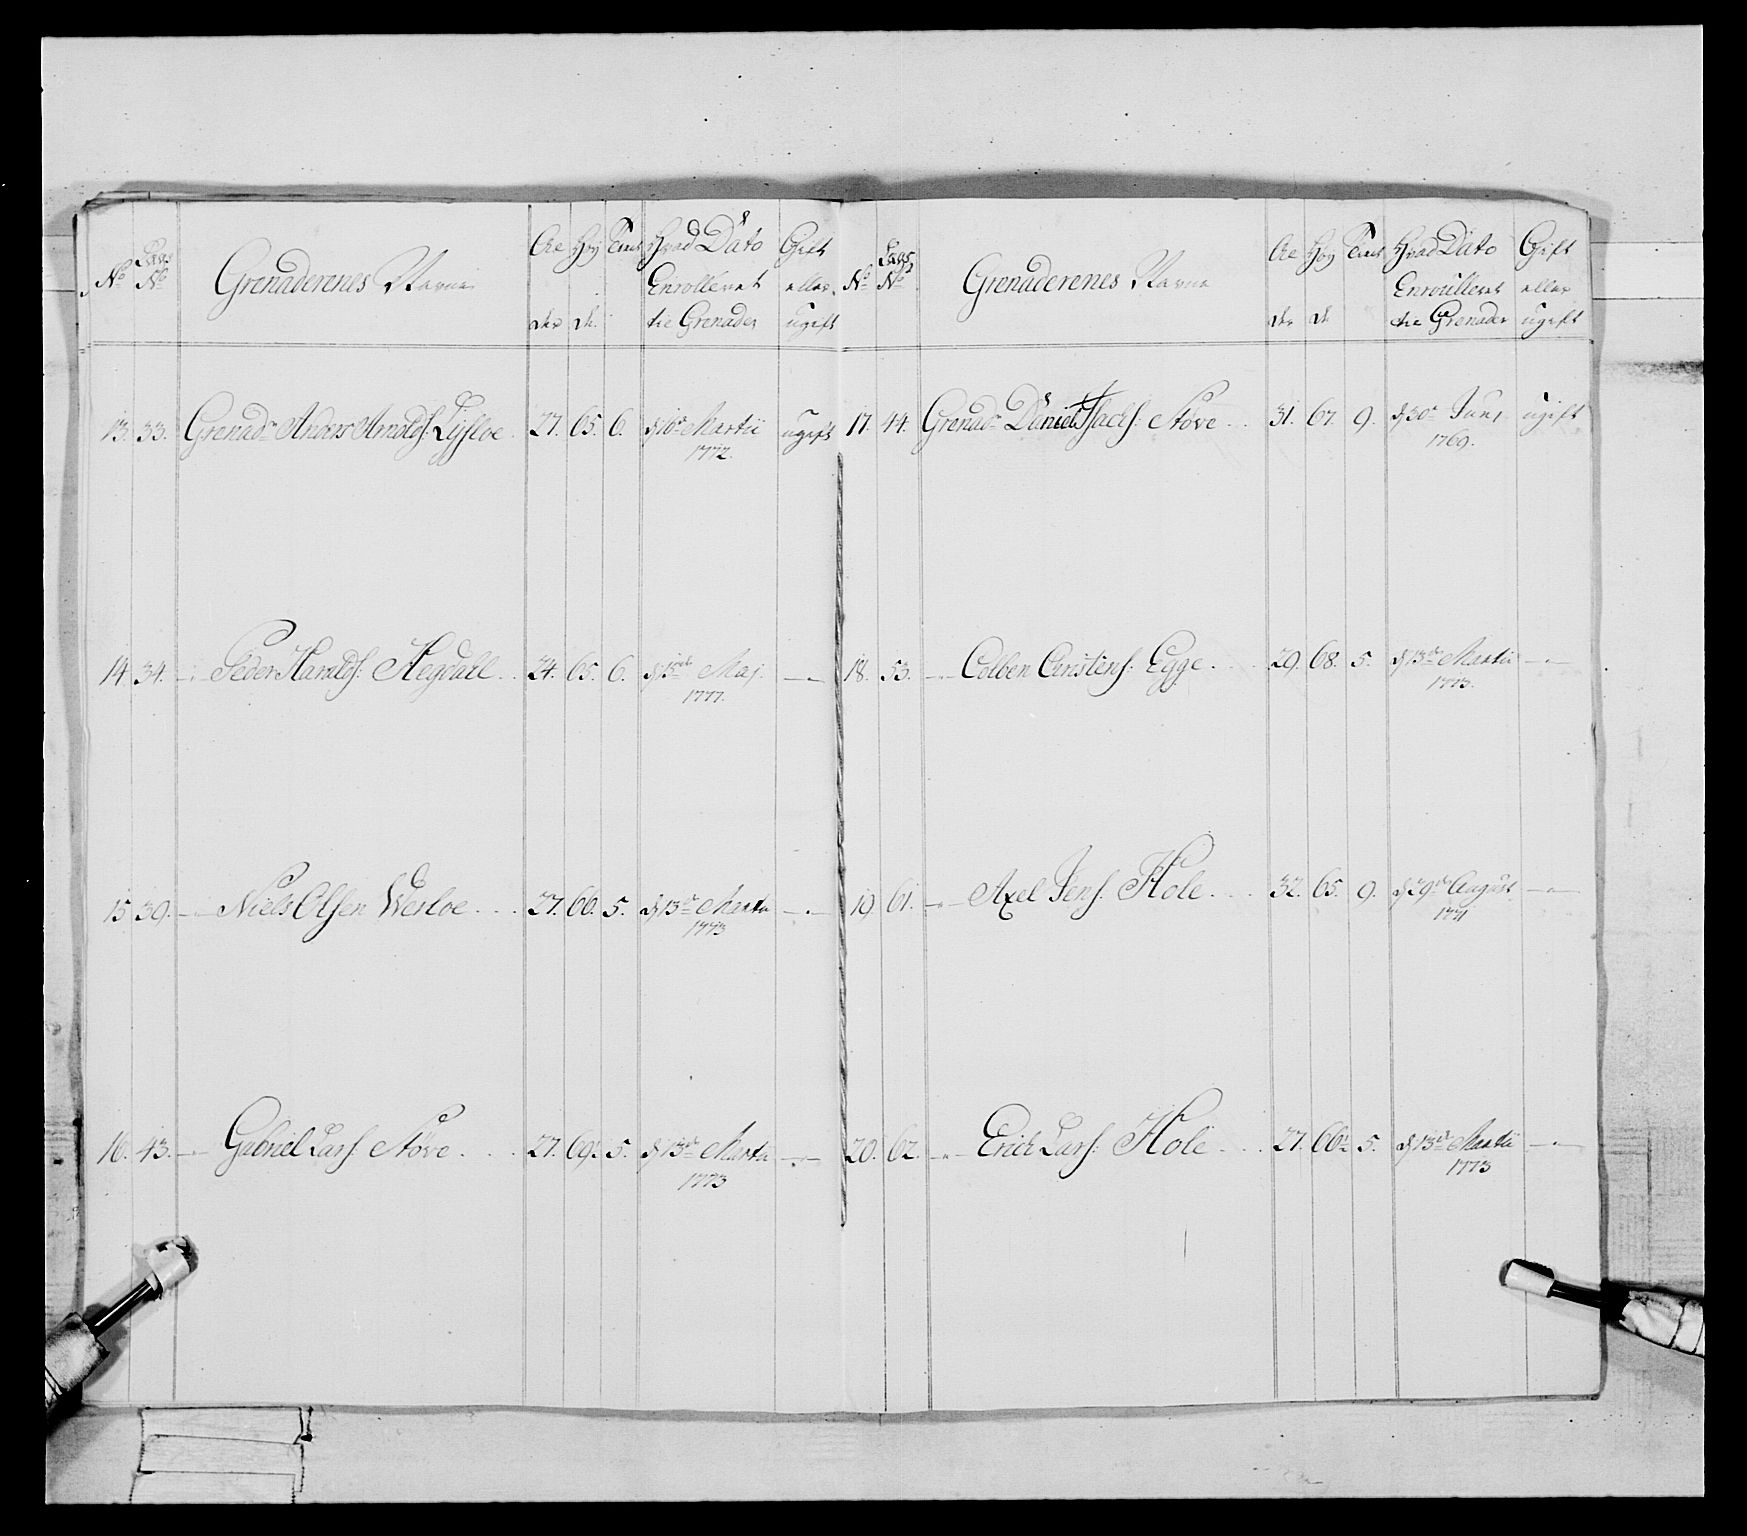 No Lægs No Grenaderenes Navne Alder Høyde Tient Hvad Dato Enrolleret til Grenader Gift eller ugift
13. 33. Grenadr Anders Arnolds: Lysloe. 27. 65. 6. d 10de Martii 1772. ugift
14. 34. — Peder Haralds: Hegdall. 24. 65. 6. d 15de Maj 1777. —
15. 39. — Niels Olsen Werloe. 27. 66. 5. d 13de Martii 1773 —
16. 43. — Gabriel Lars: Støve. 27. 69½ 5. d 13de Martii 1773 —
No Lægs No Grenaderenes Navne Alder Høyde Tient Hvad Dato Enroulleret til Grenader Gift eller ugift
17. 44. Grenadr Daniel Isachs: Støve. 31. 67. 9. d 30te Juni 1769. ugift
18. 53. — Colben Christens: Egge. 29. 68. 5. d 13de Martii 1773. —
19. 61. — Axel Jens: Hole. 32. 65. 9. d 29de August 1771 —
20. 62. — Erich Lars: Hole. 27. 66½ 5. d 13de Martii 1773 —